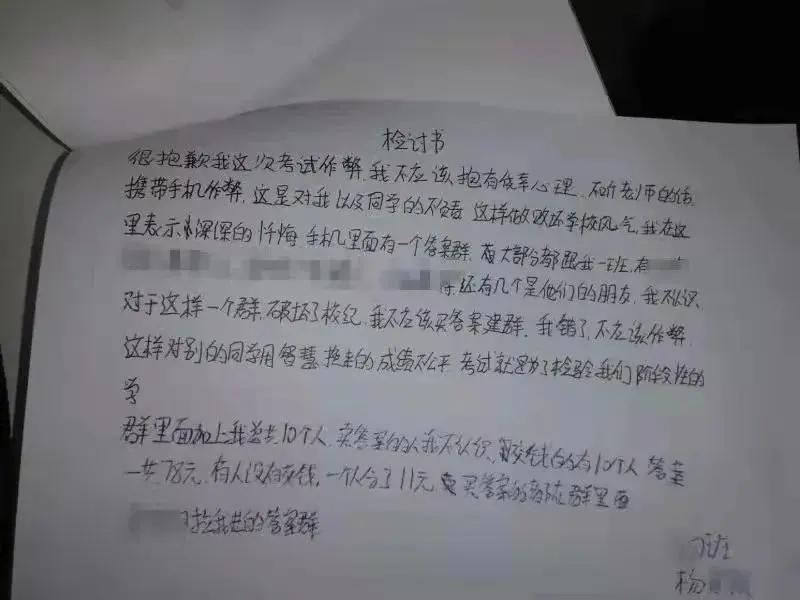 检讨书
很抱歉我这次考试作弊,我不应该抱有侥幸心理,不听老师的话,
携带手机作弊,这是对我以及同学的不负责 这样做败坏学校风气,我在这
里表示深深的忏悔,手机里面有一个答案群,有大部分都跟我一班,有
还有几个是他们的朋友,我不认识,
对于这样一个群,破坏了校纪,我不应该买答案建群,我错了,不应该作弊,
这样对别的同学用智慧换来的成绩不公平 考试就是为了检验我们阶段性的
学
群里面加上我总共10个人,卖答案的人我不认识,交钱的有10个人 答案
一共78元,有人没有交钱,一个人分了11元 买答案的都在群里面
拉我进的答案群
班
杨